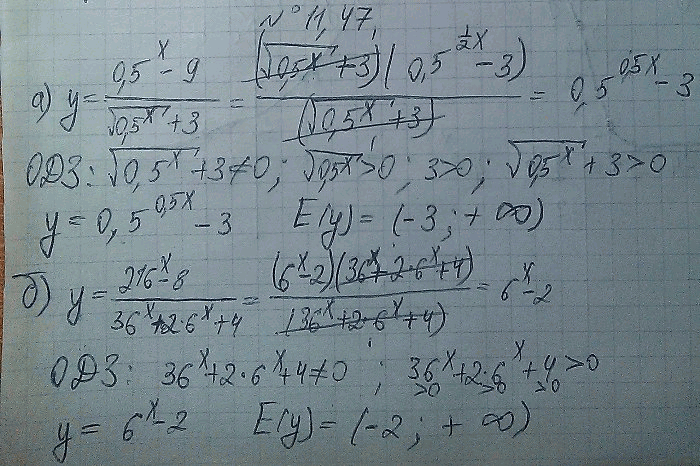 № 11,47,
а) y = (0,5^x - 9)/(√(0,5^x) + 3) = ((√(0,5^x) + 3)(0,5^(1/2 x) - 3))/((√(0,5^x) + 3)) = 0,5^(0,5x) - 3
ОДЗ: √(0,5^x) + 3 ≠ 0; √(0,5^x) > 0; 3 > 0; √(0,5^x) + 3 > 0
y = 0,5^(0,5x) - 3 E(y) = (-3; + ∞)
б) y = (216^x - 8)/(36^x + 2·6^x + 4) = ((6^x - 2)(36^x + 2·6^x + 4))/((36^x + 2·6^x + 4)) = 6^x - 2
ОДЗ: 36^x + 2·6^x + 4 ≠ 0; 36^x + 2·6^x + 4 > 0
>0 >0 >0
y = 6^x - 2 E(y) = (-2; + ∞)